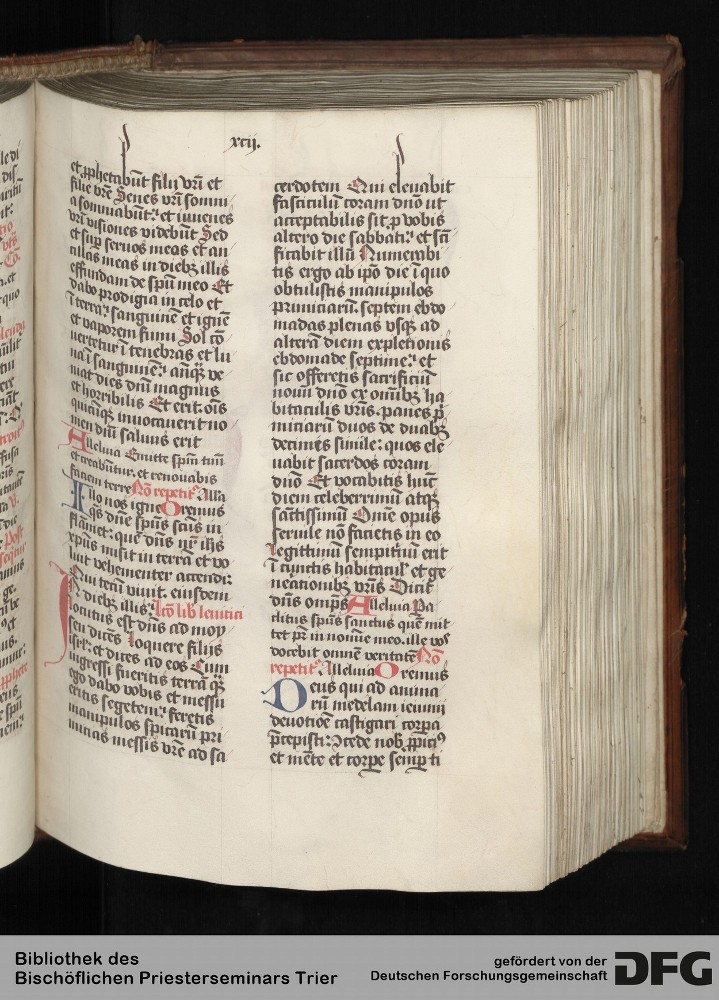 xcii.
et ꝓphetabūt filij vr̄i et
filie vr̄e Senes vr̄i somni
a somniabūt: et iuuenes
vr̄i visiones videbūt Sed
et suꝑ seruos meos et an
cillas meas in diebꝫ illis
effundam de spū meo Et
dabo prodigia in celo et
ī terra: sanguinē et ignē
et vaporem fumi Sol cō
uertetur ī tenebras et lu
na ī sanguinē: anq̄ꝫ ve
niat dies dn̄i magnus
et horribilis Et erit: oīs
quicūqꝫ inuocauerit no
men dn̄i saluus erit
Alleluia Emitte spm̄ tuū
et creabūtur. et renouabis
faciem terre Nō repetitᵘ. Alla
Illo nos igne Oremus
qs̄ dn̄e spūs scūs in
flāmet: que dn̄s nr̄ ihs
xpūs misit in terrā et vo
luit vehementer accendi:
Qui tecū viuit. eiusdem
In diebꝫ illis: Lcō lib̄ leuitici
locutus est dn̄s ad moy
sen dicēs Loquere filijs
isrl: et dices ad eos Cum
ingressi fueritis terrā qꝫ
ego dabo vobis et messu
eritis segetem: feretis
manipulos spicarū pri
micias messis vr̄e ad sa
cerdotem Qui eleuabit
fasciculū coram dn̄o ut
acceptabilis sit ꝓ vobis
altero die sabbati: et scī
ficabit illū Numerabi
tis ergo ab ip̄o die ī quo
obtulistis manipulos
primiciarū: septem ebdo
madas plenas vsqꝫ ad
alterā diem expletionis
ebdomade septime: et
sic offeretis sacrificiū
nouū dn̄o ex om̄ibꝫ ha
bitaculis vr̄is. panes p̄
miciarū duos de duabꝫ
decimis simile: quos ele
uabit sacerdos coram
dn̄o Et vocabitis hūc
diem celeberrimū atqꝫ
sanctissimū Om̄e opus
seruile nō facietis in eo
Legittimū sempitnū erit
ī cunctis habitaculꝭ et ge
neationibꝫ vr̄is Dicit
dn̄s omp̄s Alleluia Pa
clitus spūs sanctus quē mit
tet pr̄ in nomie meo. ille vos
docebit omnē veritatē Nō
repetitᵘ. Alleluia Oremus
Deus qui ad anima
rū medelam ieiunii
deuotiōe castigari corpa
p̄cepisti: ꝯcede nob̄ ꝓpiciᵘ
et mēte et corpe semꝑ ti
Bibliothek des
Bischöflichen Priesterseminars Trier
gefördert von der
Deutschen Forschungsgemeinschaft
DFG